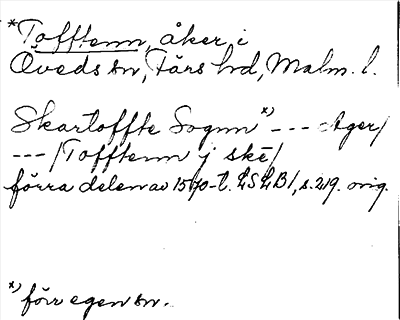 *Tofftenn, åker i
Öveds sn, Färs hd, Malm. l.
Skartoffte Sognn *) --- Ager/
--- /Tofftenn j skē/
förra delen av 1570-t. LSLB1, s. 219. orig.
*) förr egen sn.